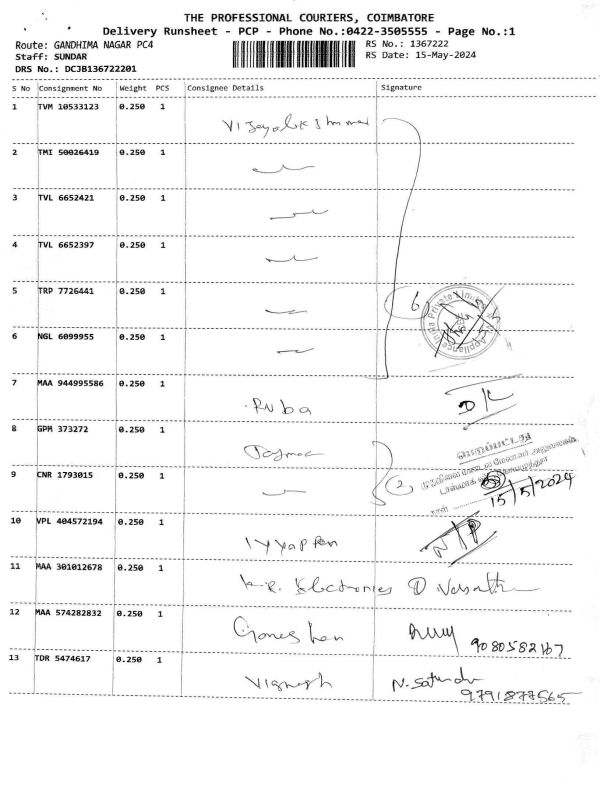 THE PROFESSIONAL COURIERS, COIMBATORE
Delivery Runsheet - PCP - Phone No.:0422-3505555 - Page No.:1
Route: GANDHIMA NAGAR PC4 RS No.: 1367222
Staff: SUNDAR RS Date: 15-May-2024
DRS No.: DCJB136722201
S No Consignment No Weight PCS Consignee Details Signature
1 TVM 10533123 0.250 1
2 TMI 50026419 0.250 1
3 TVL 6652421 0.250 1
4 TVL 6652397 0.250 1
5 TRP 7726441 0.250 1
6
6 NGL 6099955 0.250 1
7 MAA 944995586 0.250 1 Ruba
8 GPM 373272 0.250 1
பெறப்பட்டது
9 CNR 1793015 0.250 1 2
15/5/2024
10 VPL 404572194 0.250 1 Iyyappan
11 MAA 301012678 0.250 1 K.R. Electronics
12 MAA 574282832 0.250 1 Ganeshan 9080582167
13 TDR 5474617 0.250 1 Vignesh 9791877565